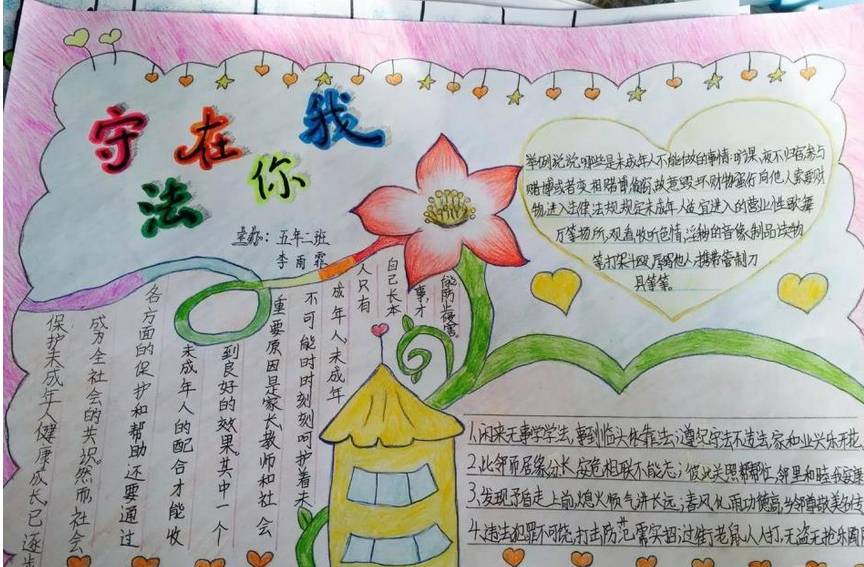 守法在你我
五年二班
李雨霏
保护未成年人健康成长已逐步
成为全社会的共识。然而,社会
各方面的保护和帮助还要通过
未成年人的配合才能收
到良好的效果。其中一个
重要原因是家长、教师和社会
不可能时时刻刻呵护着未
成年人,未成年
人只有
自己长本
事,才
能防止侵害。
举例说说哪些是未成年人不能做的事情:旷课、夜不归宿,参与
赌博或者变相赌博,偷窃,故意毁坏财物,强行向他人索要财
物,进入法律法规规定未成年人适宜进入的营业性歌舞
厅等场所,观看收听色情,淫秽的音像制品读物
等,打架斗殴,辱骂他人,携带管制刀
具等等。
1.闲来无事学学法,事到临头能靠法;遵纪守法不违法,家和业兴乐开花
2.比邻而居缘分长,庭院相联不能忘;彼此关照帮帮忙,邻里和睦
3.发现矛盾走上前,熄火顺气讲长远;春风化雨功德高,乡邻尊敬美名
4.违法犯罪不可饶,打击防范需实招;过街老鼠人人打,无盗无抢乐